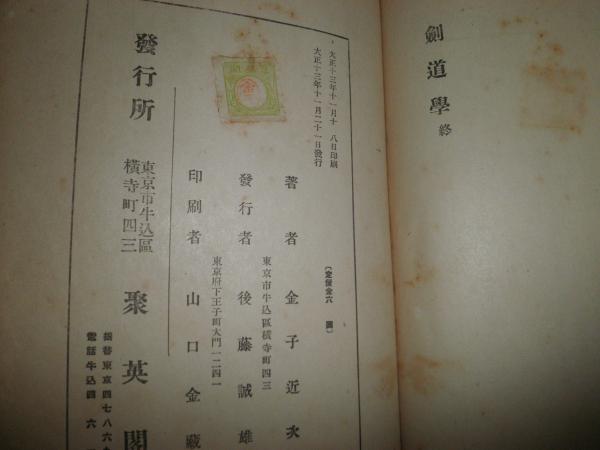 劍道學 終
大正十三年十一月十八日印刷
大正十三年十一月二十一日發行
〔定價金六圓〕
著者 金子近次
東京市牛込區橫寺町四三
發行者 後藤誠雄
東京府下王子町大門一二四一
印刷者 山口金藏
發行所
東京市牛込區
橫寺町四三
聚英閣
振替東京四七八六
電話牛込四六